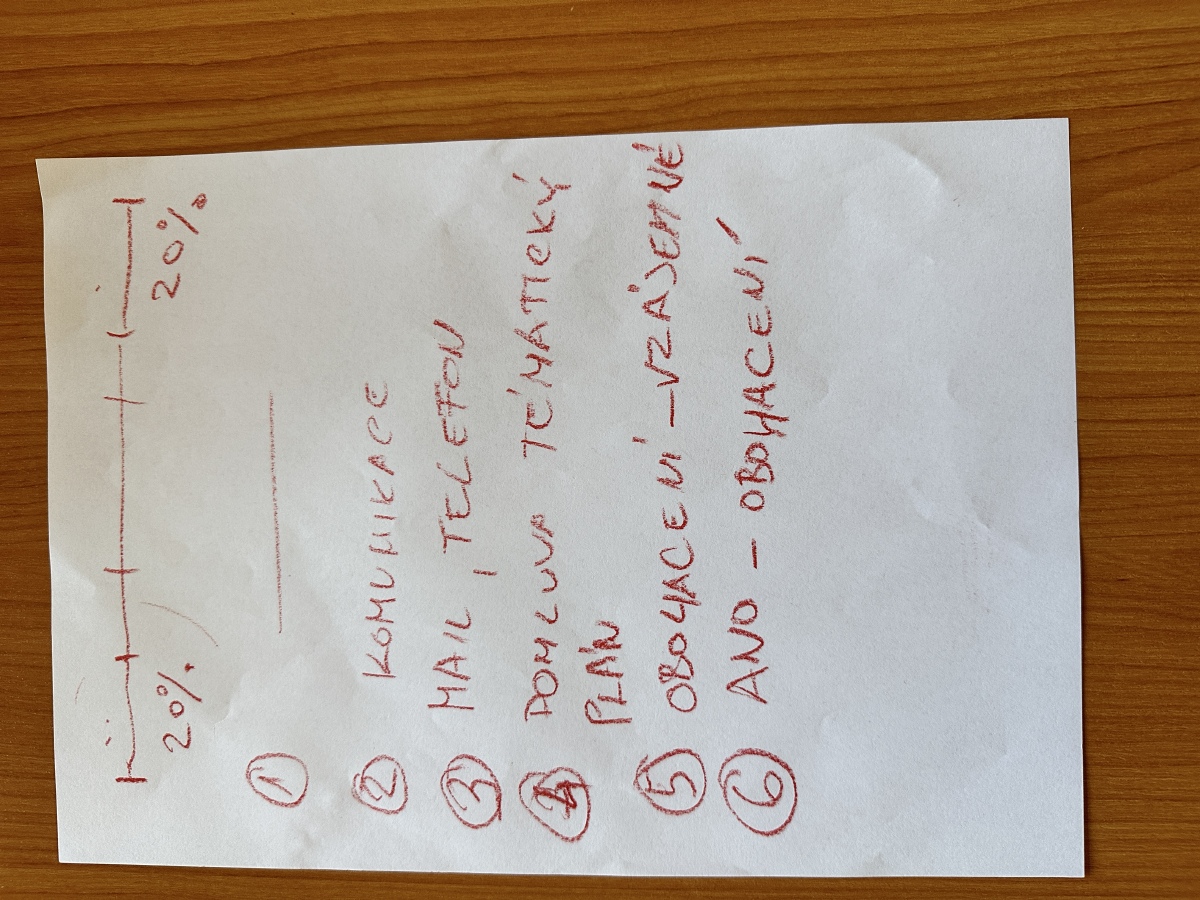 20% 20%
①
② KOMUNIKACE
③ MAIL, TELEFON
④ DOMLUVA TÉMATICKÝ
PLÁN
⑤ OBOHACENÍ - VZÁJEMNÉ
⑥ ANO - OBOHACENÍ